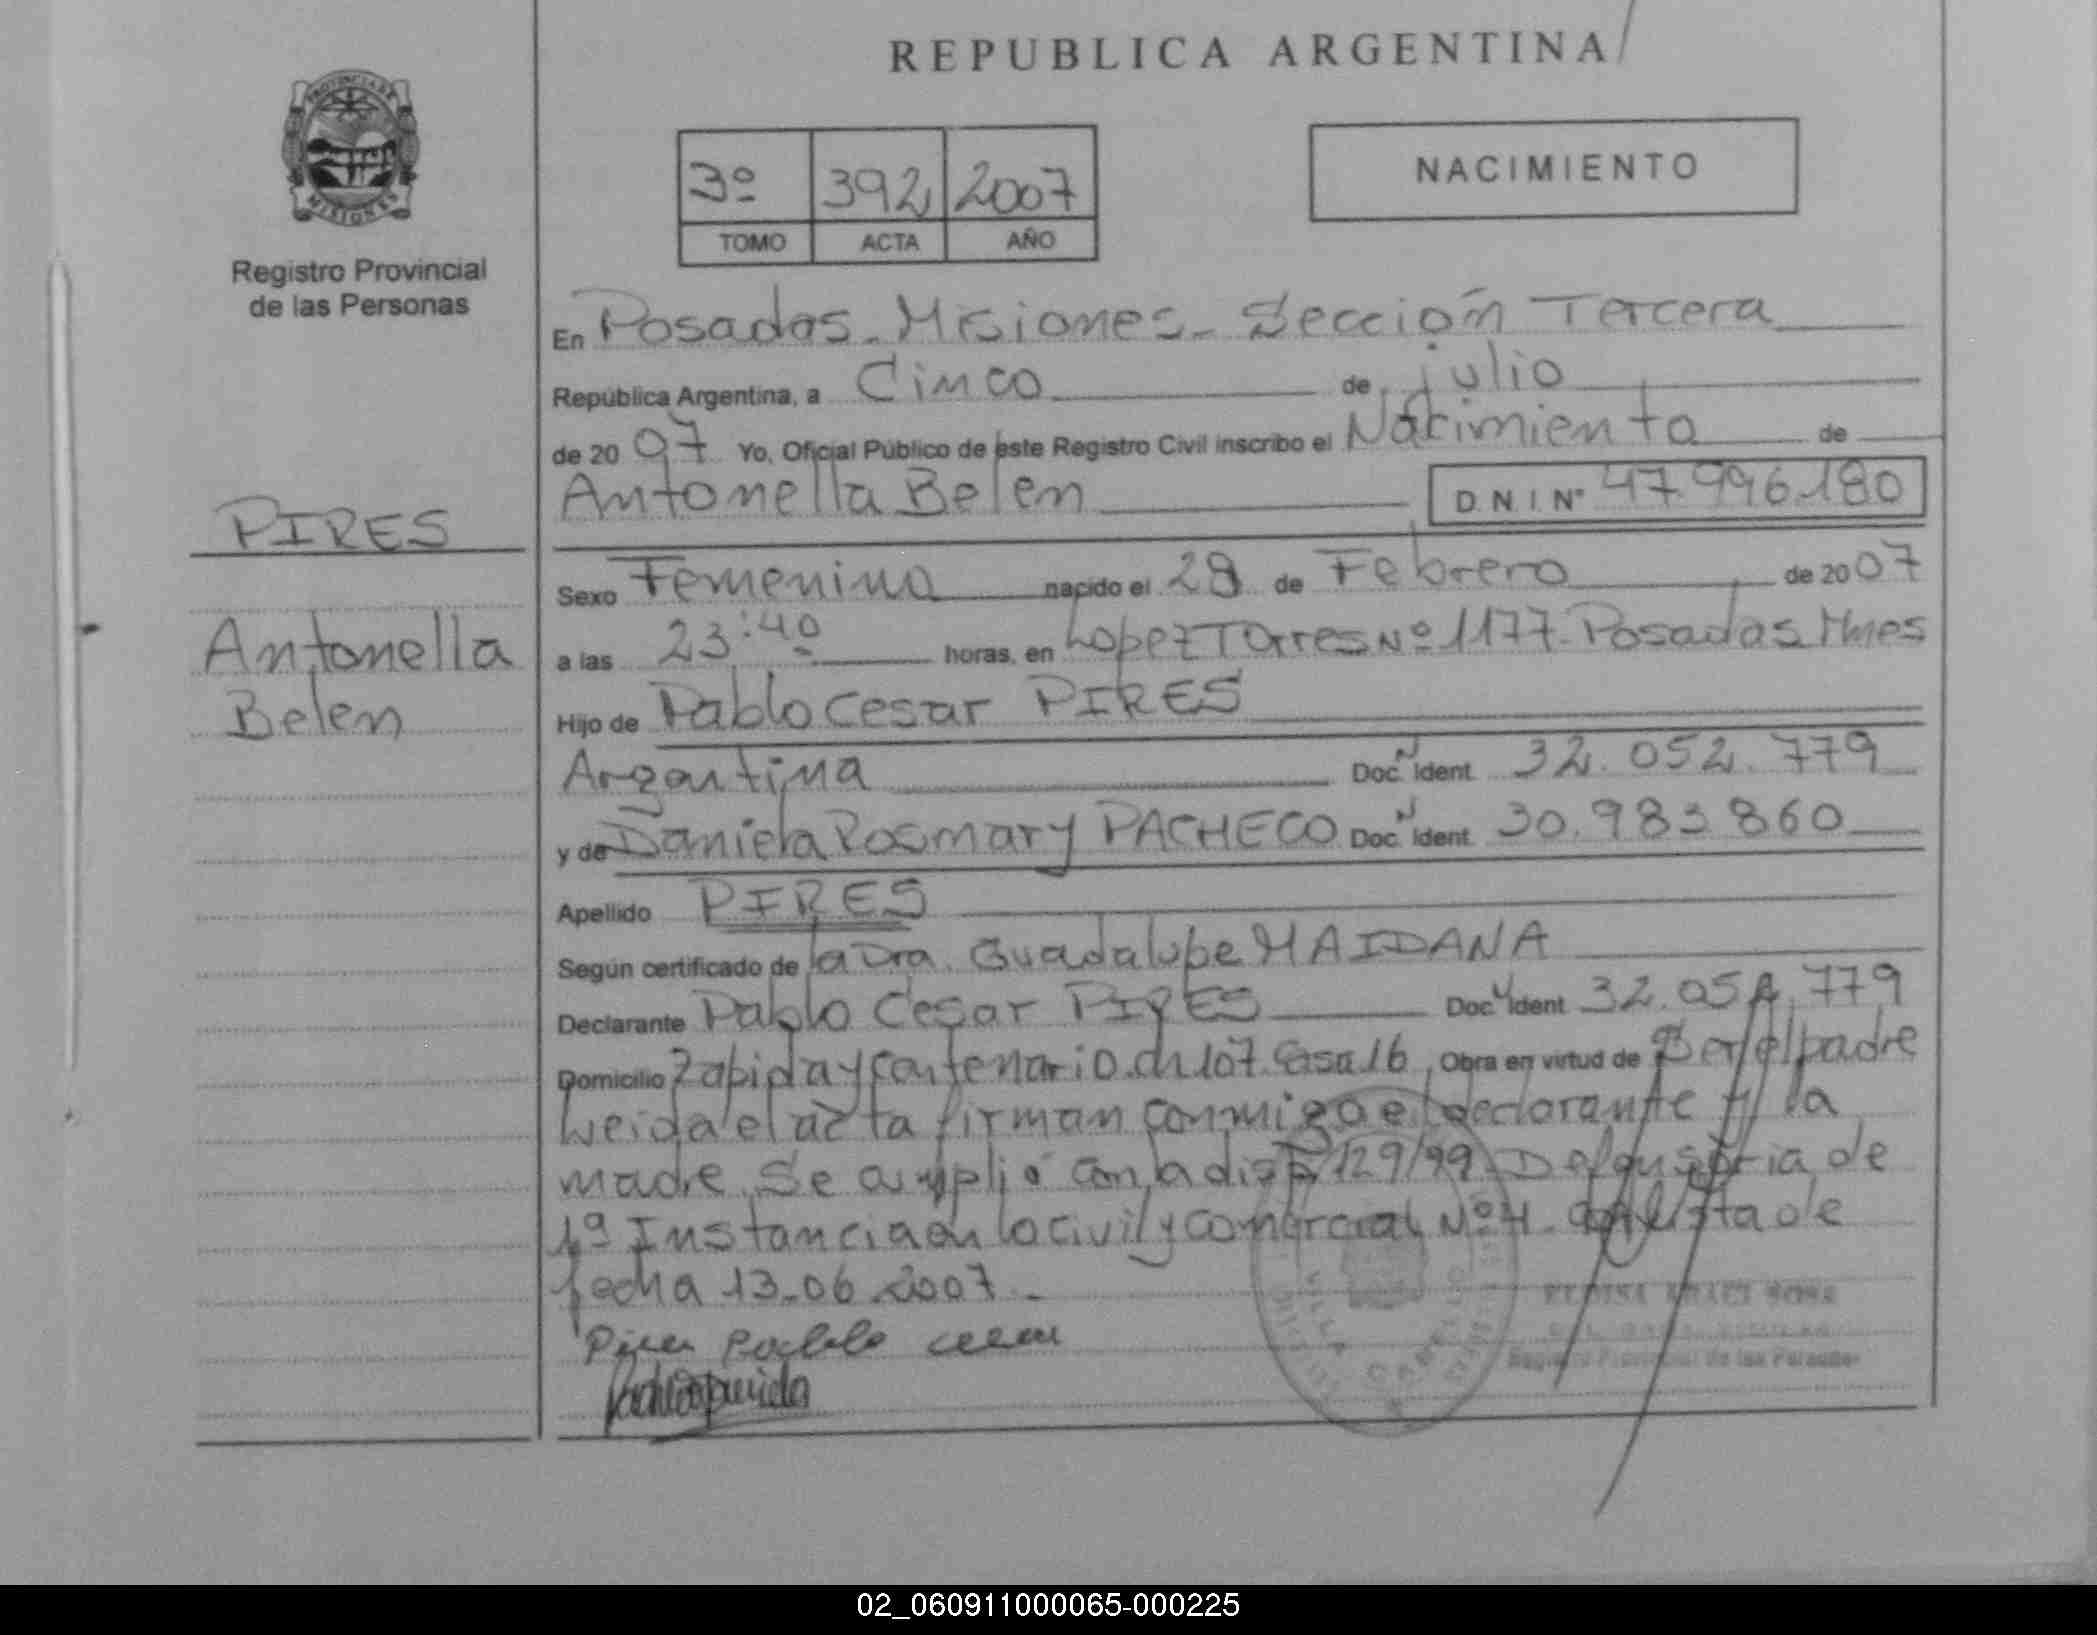 REPUBLICA ARGENTINA
PROVINCIA DE
MISIONES
Registro Provincial
de las Personas
3º 392 2007
TOMO ACTA AÑO
NACIMIENTO
En Posadas - Misiones - Sección Tercera
República Argentina, a Cinco de julio
de 2007 Yo, Oficial Público de este Registro Civil inscribo el Nacimiento de
Antonella Belen D.N.I. Nº 47.996.180
PIRES
Antonella
Belen
Sexo Femenino nacido el 28 de Febrero de 2007
a las 23:40 horas, en Lopez Torres Nº 1177 - Posadas Mnes
Hijo de Pablo Cesar PIRES
Argentina Doc. Ident. 32.052.779
y de Daniela Rosmary PACHECO Doc. Ident. 30.983.860
Apellido PIRES
Según certificado de la Dra. Guadalupe MAIDANA
Declarante Pablo Cesar PIRES Doc. Ident. 32.052.779
Domicilio Zapiola y Centenario ch 107 Casa 16, Obra en virtud de Ser el padre
Leida el acta firman conmigo el declarante y la
madre. Se cumplió con la disp 129/99 Defensoria de
1ª Instancia en lo civil y comercial Nº 4 de
fecha 13-06-2007 -
Pires Pablo cesar
Registro Provincial de las Personas
02_060911000065-000225